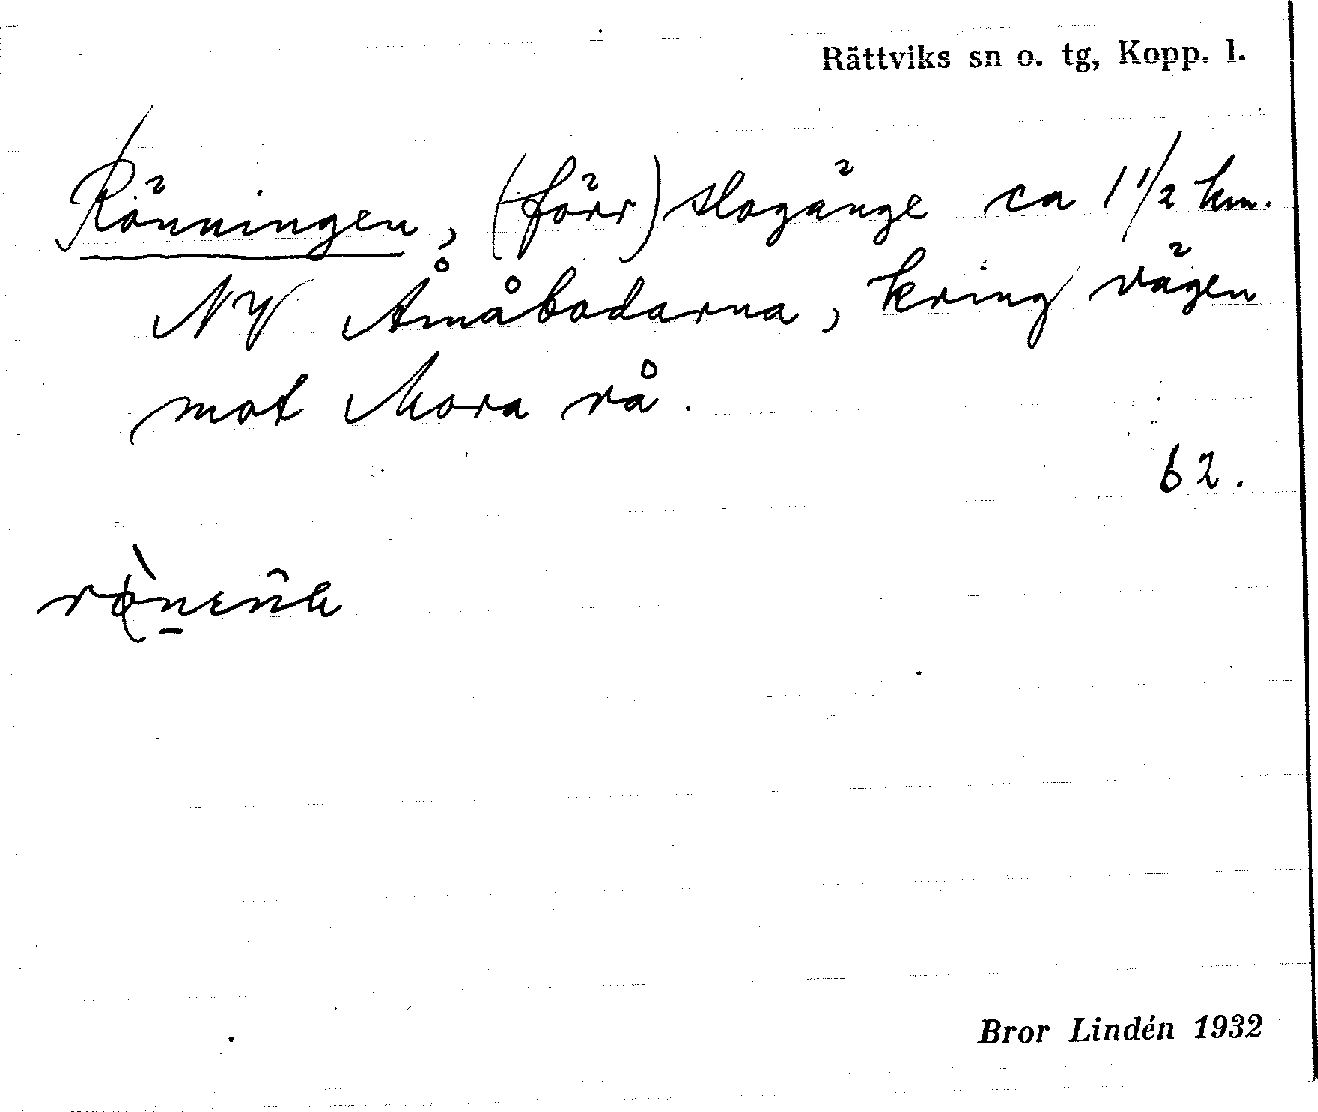 Rättviks sn o. tg, Kopp. l.
Rönningen, (förr) slogänge ca 1 1/2 km.
NV Åmåbodarna, kring vägen
mot Mora rå.
62.
Bror Lindén 1932